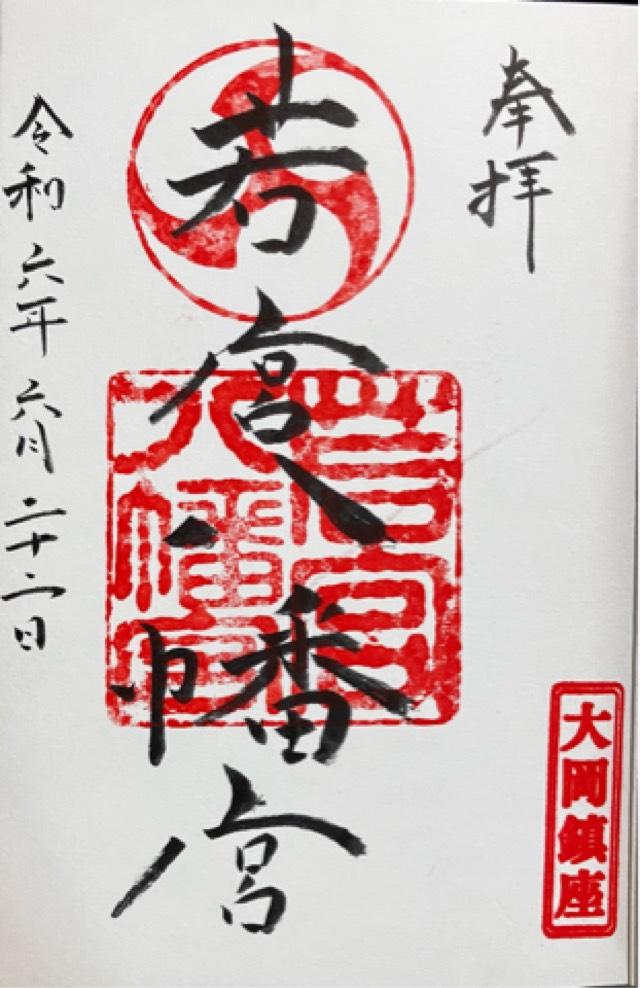 奉拝
大岡鎮座
若宮八幡宮
若宮
八幡宮
令和六年六月二十二日